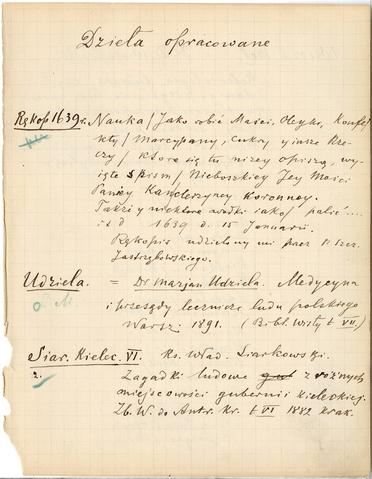 Dzieła opracowane
Rękop 1639 r. Nauka / Jako robić Maści, Oleyki, Konfek
kty / Marcypany, Cukry y insze Rze
czy / ktore się tu niżey opiszą, wy
ięte z pism / Nieboskiey Jey Mości
Paniey Kanclerzyney Koronney.
Także y niektore wodki jako / palić....
itd 1639 d. 15 Januarii.
Rękopis udzielony mi przez P. Szcz.
Jastrzębowskiego.
Udziela. = Dr Marjan Udziela. Medycyna
i przesądy lecznicze ludu polskiego
Warsz. 1891. (Bibl. Wisły t VII.)
Siar. Kielec. VI. Ks. Wład. Siarkowski.
2. Zagadki ludowe z różnych
miejscowości gubernii kieleckiej.
Zb. W. do Antr. Kr. t VI 1882 Krak.